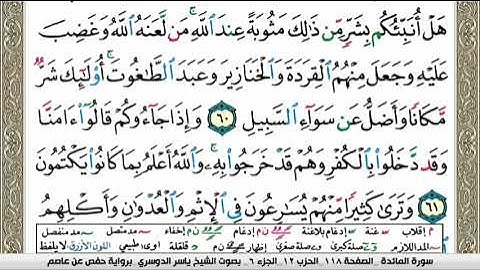 هَلْ أُنَبِّئُكُم بِشَرٍّ مِّن ذَٰلِكَ مَثُوبَةً عِندَ ٱللَّهِ ۚ مَن لَّعَنَهُ ٱللَّهُ وَغَضِبَ
عَلَيْهِ وَجَعَلَ مِنْهُمُ ٱلْقِرَدَةَ وَٱلْخَنَازِيرَ وَعَبَدَ ٱلطَّٰغُوتَ ۚ أُو۟لَٰٓئِكَ شَرٌّ
مَّكَانًا وَأَضَلُّ عَن سَوَآءِ ٱلسَّبِيلِ ٦٠ وَإِذَا جَآءُوكُمْ قَالُوٓا۟ ءَامَنَّا
وَقَد دَّخَلُوا۟ بِٱلْكُفْرِ وَهُمْ قَدْ خَرَجُوا۟ بِهِۦ ۚ وَٱللَّهُ أَعْلَمُ بِمَا كَانُوا۟ يَكْتُمُونَ
٦١ وَتَرَىٰ كَثِيرًا مِّنْهُمْ يُسَٰرِعُونَ فِى ٱلْإِثْمِ وَٱلْعُدْوَٰنِ وَأَكْلِهِمُ
م اقلاب غنة إدغام بلاغنة إدغام إخفاء مد متصل مد منفصل
المد اللازم صلة كبرى صلة صغرى إظهار قلقلة طبيعي اللون الأزرق لا يلفظ
سورة المائدة _ الصفحة ١١٨ _ الحزب ١٢ _ الجزء ٦ _ بصوت الشيخ ياسر الدوسري برواية حفص عن عاصم